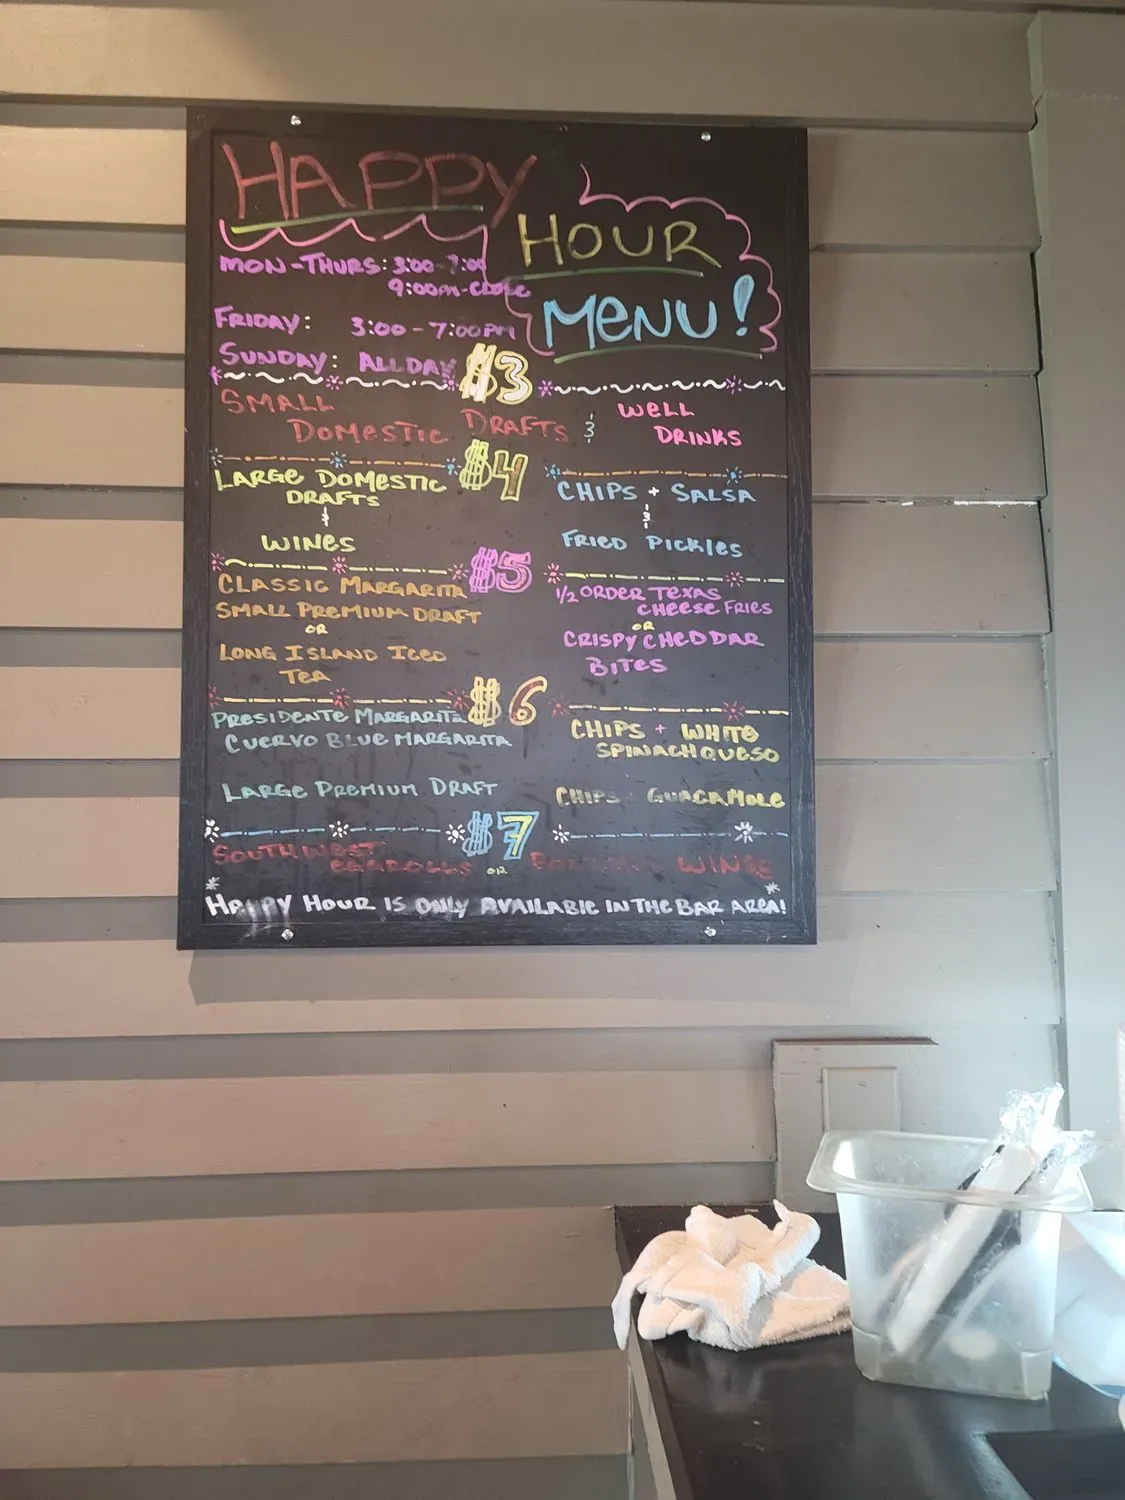 HAPPY
HOUR
MENU!
MON-THURS: 3:00-7:00
9:00pm-CLOSE
FRIDAY: 3:00-7:00PM
SUNDAY: ALL DAY
$3
SMALL
DOMESTIC DRAFTS &
WELL
DRINKS
$4
LARGE DOMESTIC
DRAFTS
&
WINES
CHIPS + SALSA
&
FRIED PICKLES
$5
CLASSIC MARGARITA
SMALL PREMIUM DRAFT
OR
LONG ISLAND ICED
TEA
1/2 ORDER TEXAS
CHEESE FRIES
OR
CRISPY CHEDDAR
BITES
$6
PRESIDENTE MARGARITA
CUERVO BLUE MARGARITA
LARGE PREMIUM DRAFT
CHIPS + WHITE
SPINACH QUESO
CHIPS GUACAMOLE
$7
SOUTHWEST
EGGROLLS OR WINGS
*HAPPY HOUR IS ONLY AVAILABLE IN THE BAR AREA!*